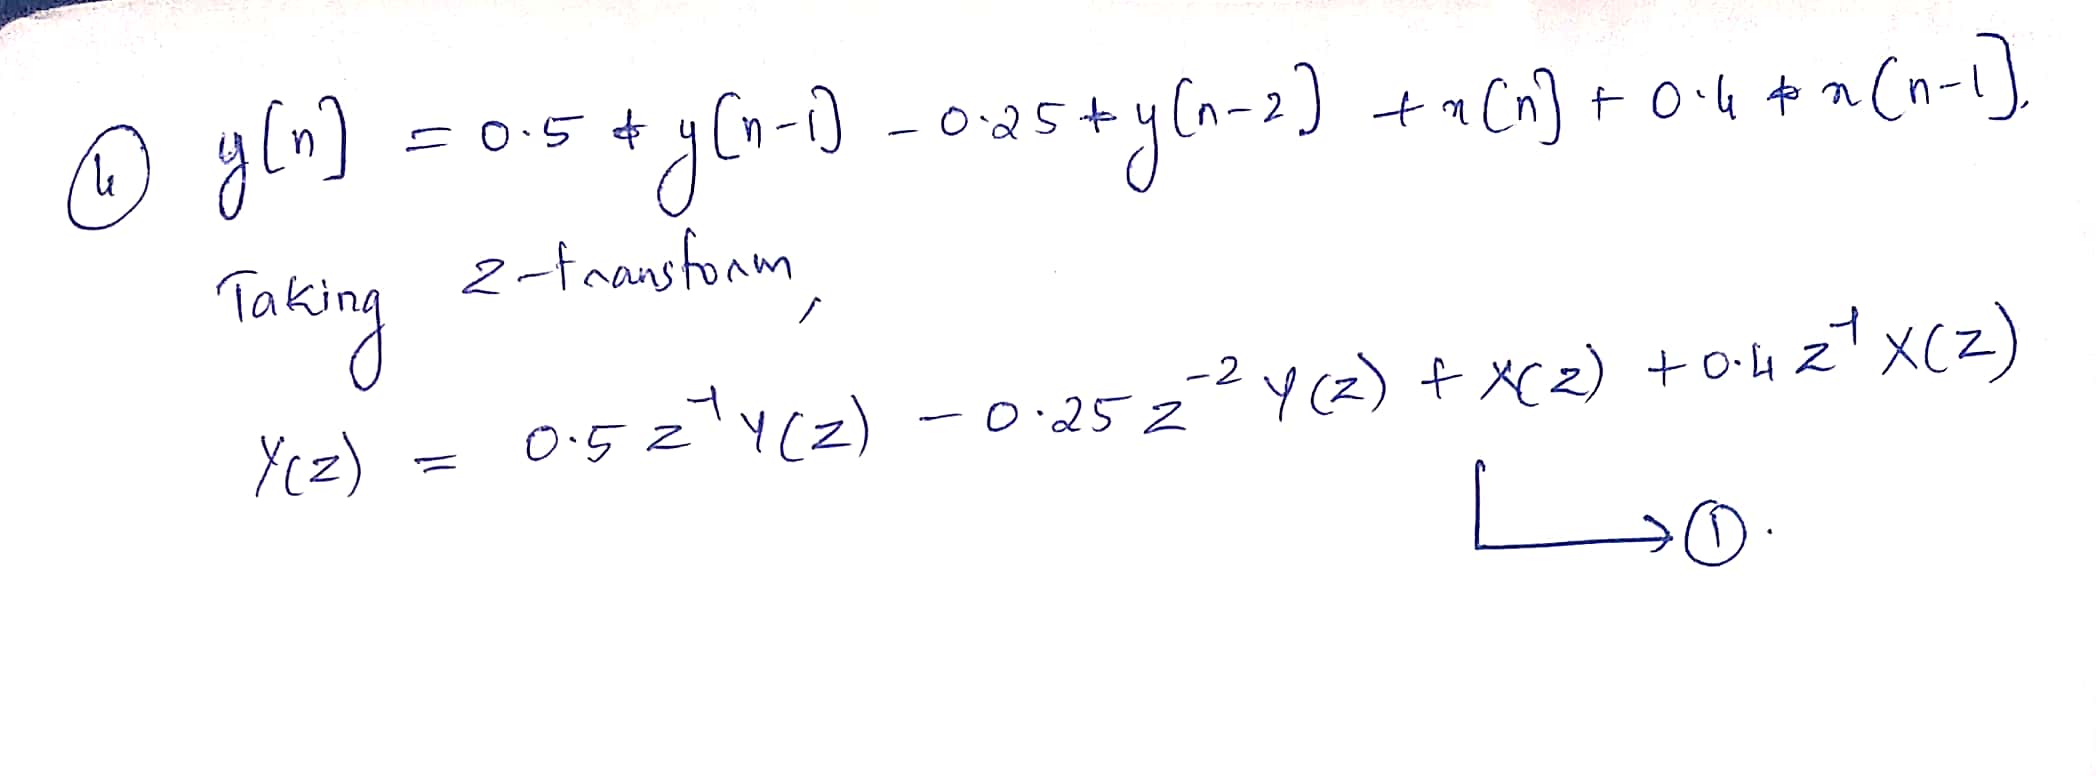 ④ y[n] = 0.5 * y[n-1] - 0.25 * y[n-2] + x[n] + 0.4 * x[n-1].
Taking z-transform,
Y(z) = 0.5 z⁻¹ Y(z) - 0.25 z⁻² Y(z) + X(z) + 0.4 z⁻¹ X(z)
↳ ①.